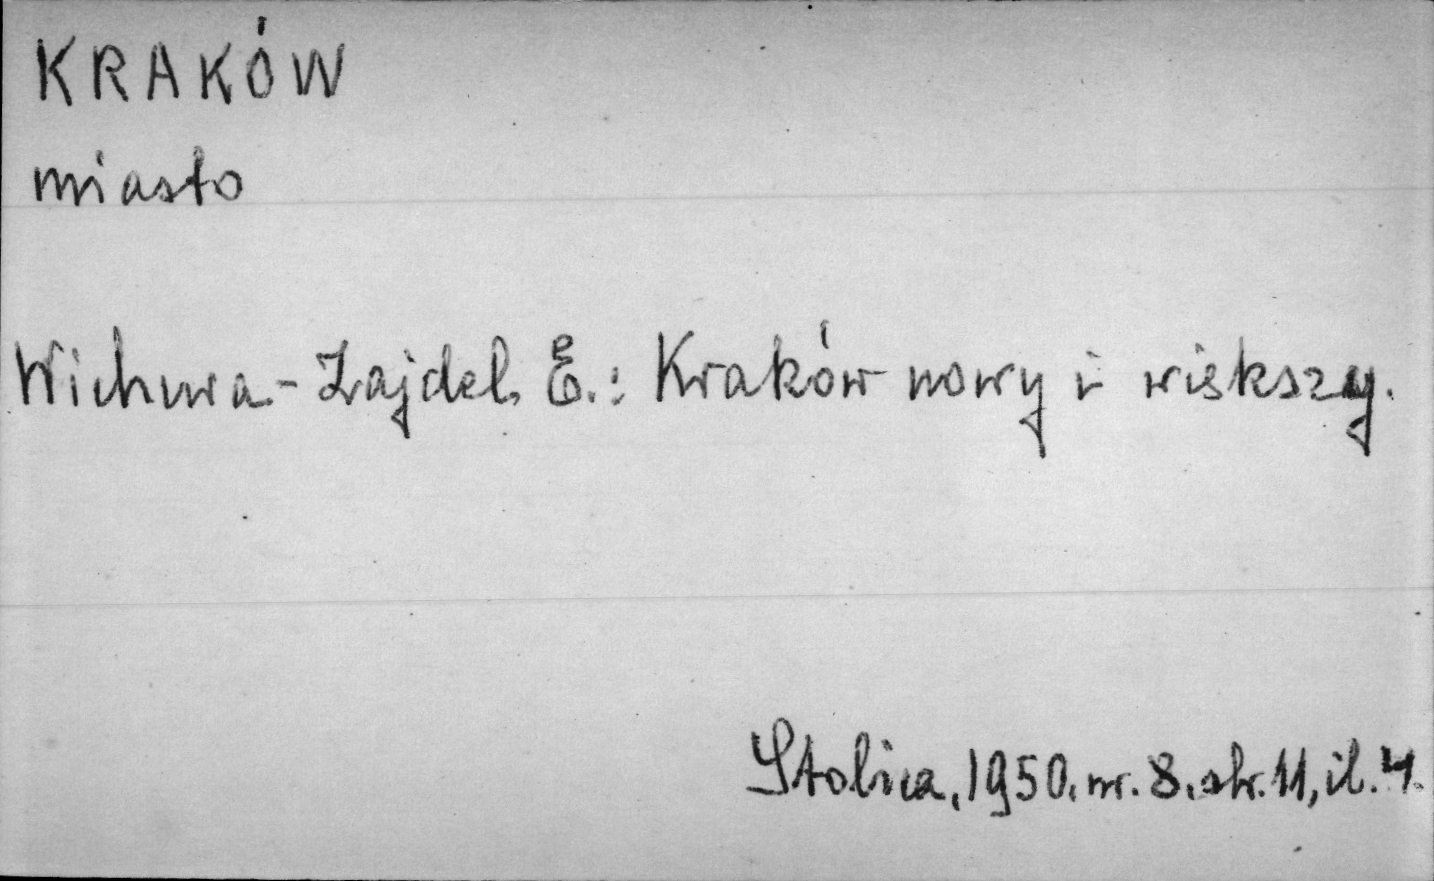 KRAKÓW
miasto
Wichura-Zajdel, E.: Kraków nowy i większy.
Stolica, 1950, nr. 8, str. 11, il. 4.